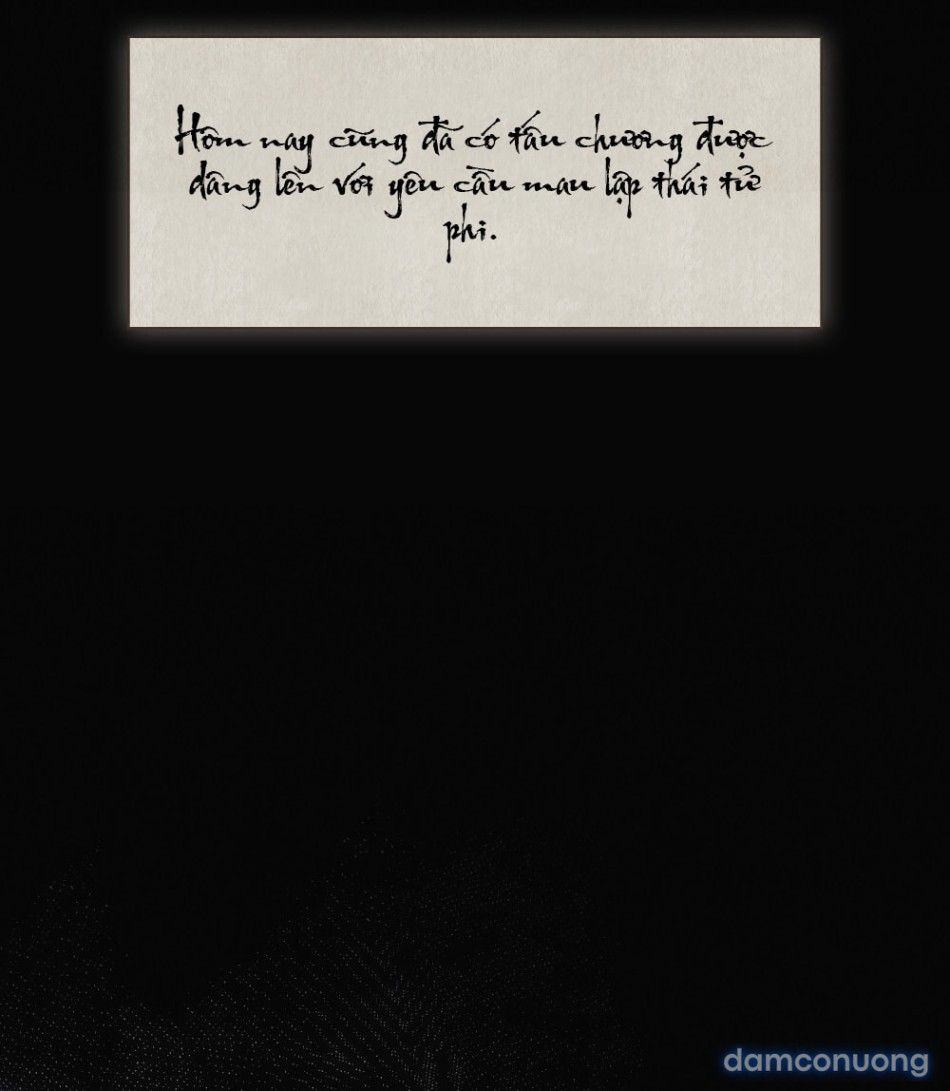 Hôm nay cũng đã có tấu chương được
dâng lên với yêu cầu mau lập thái tử
phi.
damconuong